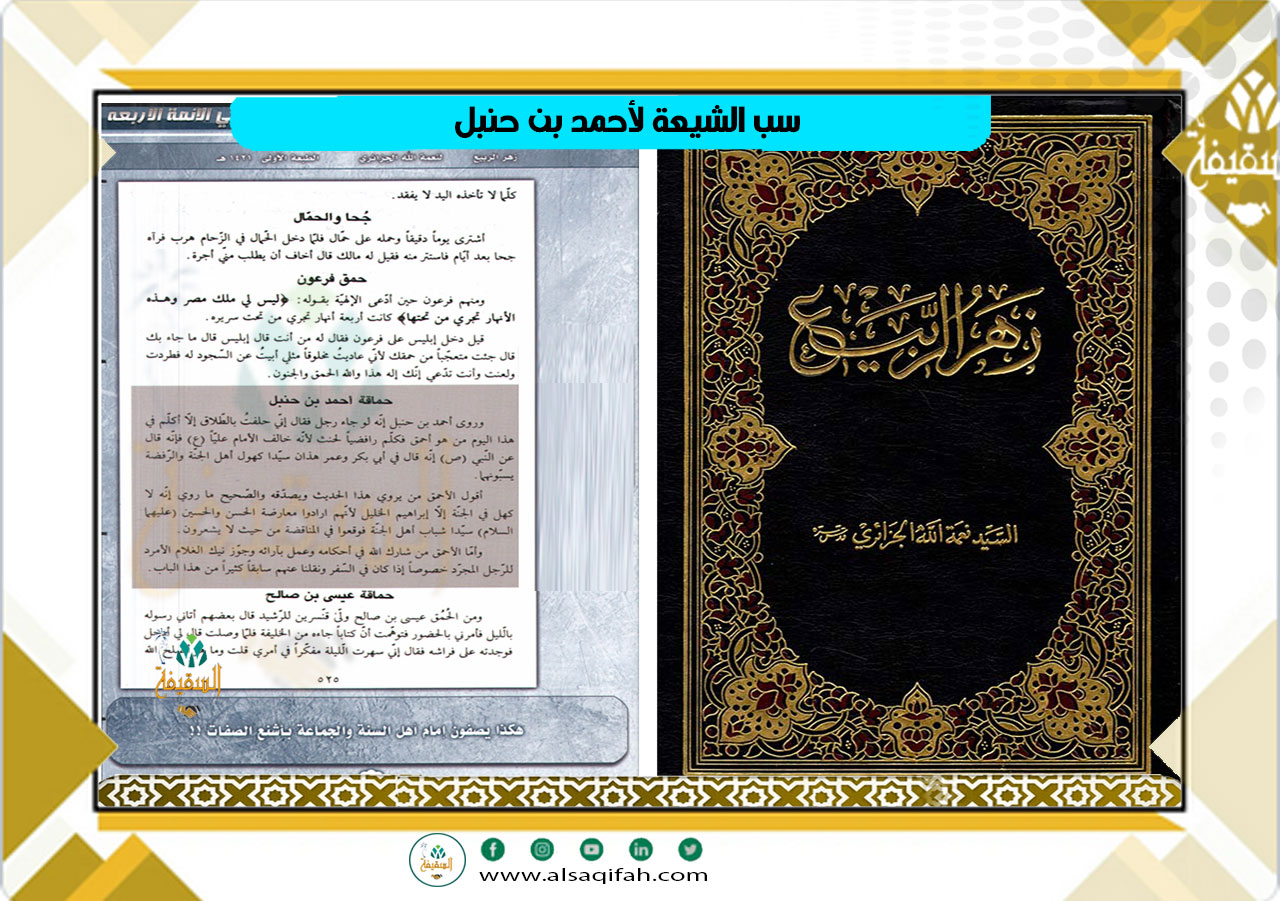 سب الشيعة لأحمد بن حنبل
ي الائمة الاربعه
زهر الربيع لنعمة الله الجزائري الطبعة الأولى ١٤٢١ هـ
كلّما لا تأخذه اليد لا يفقد.
جُحا والحمّال
أشترى يوماً دقيقاً وحمله على حمّال فلمّا دخل الحمّال في الزّحام هرب فرآه
جحا بعد أيّام فاستتر منه فقيل له مالك قال أخاف أن يطلب منّي أجرة.
حمق فرعون
ومنهم فرعون حين أدّعى الإلهيّة بقوله: ﴿أليس لي ملك مصر وهذه
الأنهار تجري من تحتها﴾ كانت أربعة أنهار تجري من تحت سريره.
قيل دخل إبليس على فرعون فقال له من أنت قال إبليس قال ما جاء بك
قال جئت متعجّباً من حمقك لأنّي عاديتُ مخلوقاً مثلي أبيتُ عن السّجود له فطردت
ولعنت وأنت تدّعي إنّك إله هذا والله الحمق والجنون.
حماقة أحمد بن حنبل
وروى أحمد بن حنبل إنّه لو جاء رجل فقال إنّي حلفتُ بالطّلاق إلّا أكلّم في
هذا اليوم من هو أحمق فكلّم رافضياً لحنث لأنّه خالف الأمام عليّاً (ع) فإنّه قال
عن النّبي (ص) إنّه قال في أبي بكر وعمر هذان سيّدا كهول أهل الجنّة والرّفضة
يسبّونهما.
أقول الأحمق من يروي هذا الحديث ويصدّقه والصّحيح ما روي إنّه لا
كهل في الجنّة إلّا إبراهيم الخليل لأنّهم ارادوا معارضة الحسن والحسين (عليهما
السلام) سيّدا شباب أهل الجنّة فوقعوا في المناقضة من حيث لا يشعرون.
وأمّا الأحمق من شارك الله في أحكامه وعمل بآرائه وجوّز نيك الغلام الأمرد
للرّجل المجرّد خصوصاً إذا كان في السّفر ونقلنا عنهم سابقاً كثيراً من هذا الباب.
حماقة عيسى بن صالح
ومن الحُمُق عيسى بن صالح ولّي قنّسرين للرّشيد قال بعضهم أتاني رسوله
بالّليل فأمرني بالحضور فتوهّمت أنّ كتاباً جاءه من الخليفة فلمّا وصلت قال لي أدخل
فوجدته على فراشه فقال إنّي سهرت الّليلة مفكّراً في أمري قلت وما الله
٥٢٥
السقيفة
هكذا يصفون امام اهل السنة والجماعة بأشنع الصفات !!
زهر الربيع
السيد نعمة الله الجزائري
السقيفة
السقيفة
www.alsaqifah.com